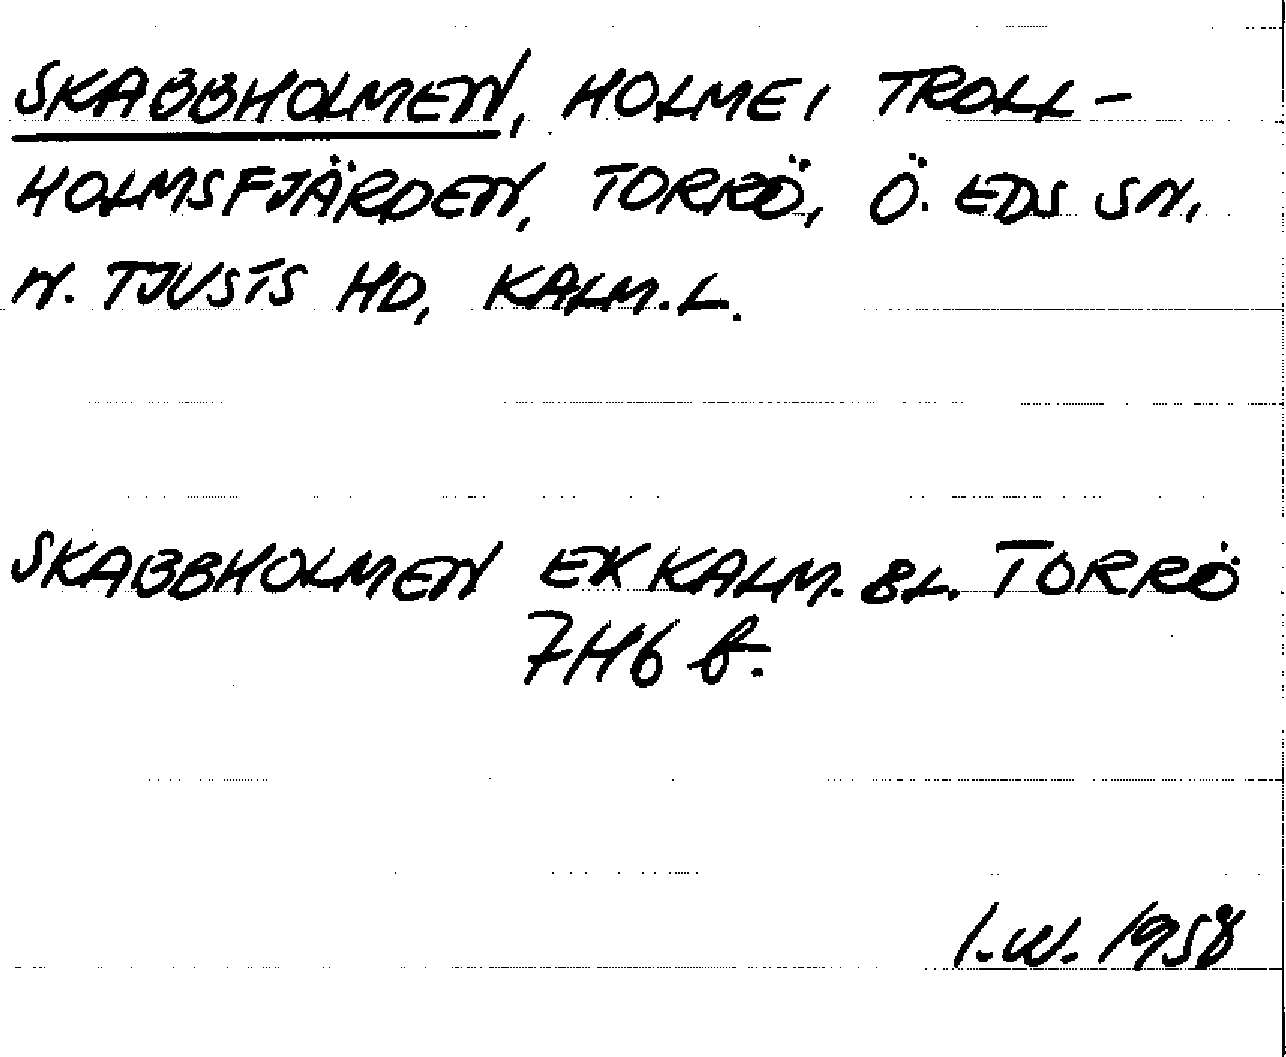 SKABBHOLMEN, HOLME I TROLL-
HOLMSFJÄRDEN, TORRÖ, Ö. EDS SN,
N. TJUSTS HD, KALM. L.
SKABBHOLMEN EK KALM. BL. TORRÖ
7H6 f.
I.W. 1958